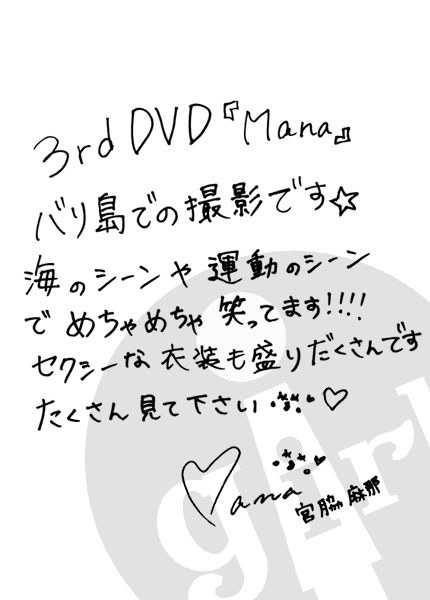 3rd DVD『Mana』
バリ島での撮影です☆
海のシーンや運動のシーン
でめちゃめちゃ笑ってます!!!!
セクシーな衣装も盛りだくさんです
たくさん見て下さい♡
Mana
宮脇麻那
girl